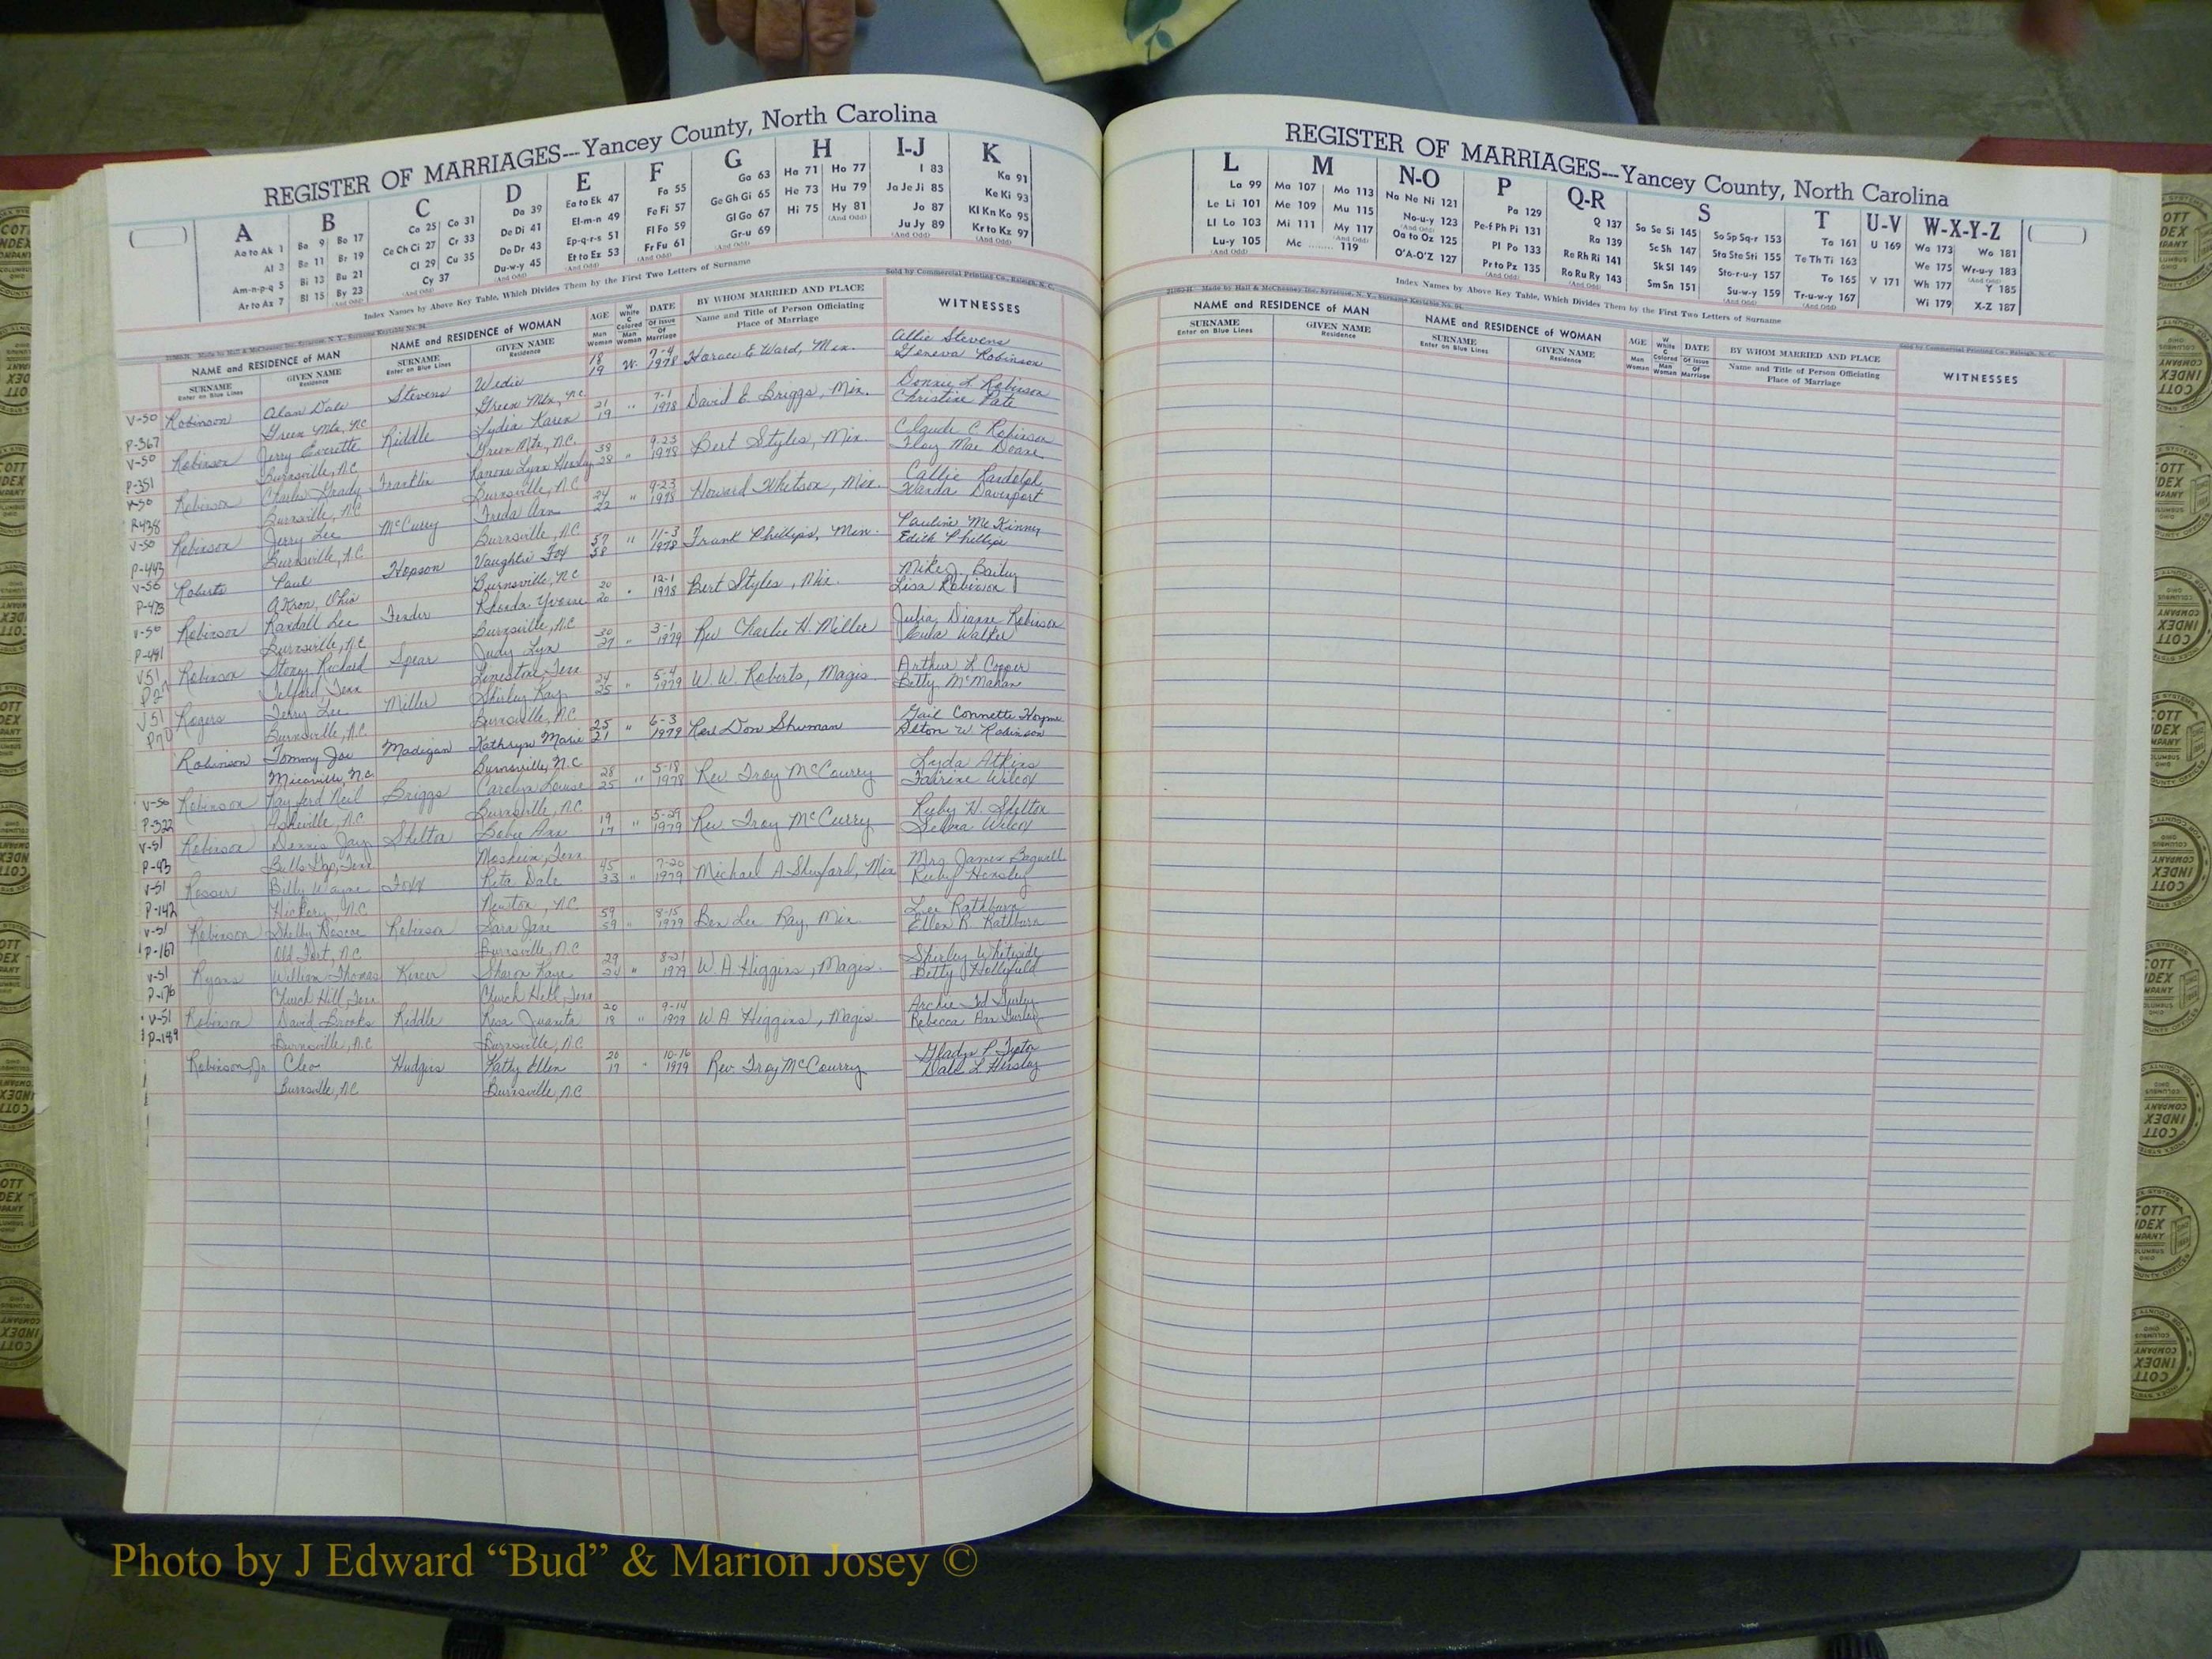 REGISTER OF MARRIAGES---Yancey County, North Carolina
A B C D E F G H I-J K
Aa to Ak 1 Ba 9 Bo 17 Ca 25 Co 31 Da 39 Ea to Ek 47 Fa 55 Ga 63 Ha 71 Ho 77 I 83 Ka 91
Al 3 Be 11 Br 19 Ce Ch Ci 27 Cr 33 De Di 41 El-m-n 49 Fe Fi 57 Ge Gh Gi 65 He 73 Hu 79 Ja Je Ji 85 Ke Ki 93
Am-n-p-q 5 Bi 13 Bu 21 Cl 29 Cu 35 Do Dr 43 Ep-q-r-s 51 Fl Fo 59 Gl Go 67 Hi 75 Hy 81 Jo 87 Kl Kn Ko 95
Ar to Az 7 Bl 15 By 23 Cy 37 Du-w-y 45 Et to Ez 53 Fr Fu 61 Gr-u 69 Ju Jy 89 Kr to Kz 97
Index Names by Above Key Table, Which Divides Them by the First Two Letters of Surname
Sold by Commercial Printing Co., Raleigh, N. C.
NAME and RESIDENCE of MAN NAME and RESIDENCE of WOMAN AGE W White C Colored DATE BY WHOM MARRIED AND PLACE WITNESSES
SURNAME Enter on Blue Lines GIVEN NAME Residence SURNAME Enter on Blue Lines GIVEN NAME Residence Man Woman Man Woman Of Issue Of Marriage Name and Title of Person Officiating Place of Marriage
V-50 Robinson Alan Dale Stevens 18 19 W. 7-4 1978 Horace E. Ward, Min. Allie Stevens Geneva Robinson
P-367 Green Mtn, NC Green Mtn, NC
V-50 Robinson Jerry Everette Riddle Lydia Karen 21 19 " 7-1 1978 David E. Briggs, Min. Donnie L. Robinson Christine Pate
P-351 Burnsville, NC Green Mtn, N.C.
V-50 Robinson Charles Grady Franklin Lynn Hensley 38 28 " 9-23 1978 Bert Styles, Min. Claude C Robinson Floy Mae Deane
P-438 Burnsville, NC Burnsville, N.C
V-50 Robinson Jerry Lee McCurry Freda Ann 24 22 " 9-23 1978 Howard Whitson, Min. Callie Randolph Wanda Davenport
P-443 Burnsville, N.C Burnsville, N.C
V-50 Roberts Paul Hopson Vaughtie Fox 57 58 " 11-3 1978 Frank Phillips, Min. Pauline McKinney Edith Phillips
P-473 Akron, Ohio Burnsville, NC
V-50 Robinson Randall Lee Fender Rhonda Yvonne 20 20 " 12-1 1978 Bert Styles, Min. Mike J. Bailey Lisa Robinson
P-491 Burnsville, N.C Burnsville, N.C
V51 Robinson Stony Richard Spear Judy Lyn 30 27 " 3-1 1979 Rev Charlie H. Miller Julia Dianne Robinson Eula Walker
Telford, Tenn Limestone, Tenn
V51 Rogers Terry Lee Miller Shirley Kay 24 25 " 5-4 1979 W. W. Roberts, Magis. Arthur L Cooper Betty McMahan
Burnsville, N.C. Burnsville, N.C
Robinson Tommy Joe Madigan Kathryn Marie 25 21 " 6-3 1979 Rev Don Shuman Gail Connette Alton W. Robinson
Micaville, N.C Burnsville, N.C
V-50 Robinson Neil Briggs Carolyn Louise 28 25 " 5-18 1978 Rev Troy McCourry Lyda Atkins Wilcox
P-322 Asheville, N.C Burnsville, N.C.
V-51 Robinson Dennis Jay Shelton Ann 19 17 " 5-29 1979 Rev Troy McCurry Ruby H. Shelton Debra Wilcox
P-93 Bulls Gap, Tenn Mosheim, Tenn
V-51 Rosser Billy Wayne Foxx Rita Dale 45 33 " 7-20 1979 Michael A Shuford, Min Mrs James Bagwell Ruby Hensley
P-142 Hickory, N.C Newton, N.C
V-51 Robinson Shelby Roscoe Robinson Sara Jane 59 59 " 8-15 1979 Ben Lee Ray, Min. Lee Rathburn Ellen R. Rathburn
P-167 Old Fort, N.C Burnsville, N.C
V-51 Ryans William Thomas Sharon Kaye 29 24 " 8-21 1979 W. A. Higgins, Magis. Shirley Whiteside Betty Hollifield
P-176 Church Hill, Tenn Church Hill, Tenn
V-51 Robinson David Brooks Riddle Rosa Juanita 20 18 " 9-14 1979 W A Higgins, Magis. Archie Rebecca Ann
P-189 Burnsville, N.C Burnsville, N.C
Robinson, Jr Cleo Hudgins Kathy Ellen 20 17 " 10-16 1979 Rev Troy McCourry Gladys P. Tipton Dale L Hensley
Burnsville, N.C Burnsville, N.C
REGISTER OF MARRIAGES---Yancey County, North Carolina
L M N-O P Q-R S T U-V W-X-Y-Z
La 99 Ma 107 Mo 113 Na Ne Ni 121 Pa 129 Q 137 Sa Se Si 145 So Sp Sq-r 153 Ta 161 U 169 Wa 173 Wo 181
Le Li 101 Me 109 Mu 115 No-u-y 123 Pe-f Ph Pi 131 Ra 139 Sc Sh 147 Sta Ste Sti 155 Te Th Ti 163 We 175 Wr-u-y 183
Ll Lo 103 Mi 111 My 117 Oa to Oz 125 Pl Po 133 Re Rh Ri 141 Sk Sl 149 Sto-r-u-y 157 To 165 V 171 Wh 177 Y 185
Lu-y 105 Mc 119 O'A-O'Z 127 Pr to Pz 135 Ro Ru Ry 143 Sm Sn 151 Su-w-y 159 Tr-u-w-y 167 Wi 179 X-Z 187
Index Names by Above Key Table, Which Divides Them by the First Two Letters of Surname
NAME and RESIDENCE of MAN NAME and RESIDENCE of WOMAN AGE W White C Colored DATE BY WHOM MARRIED AND PLACE WITNESSES
SURNAME Enter on Blue Lines GIVEN NAME Residence SURNAME Enter on Blue Lines GIVEN NAME Residence Man Woman Man Woman Of Issue Of Marriage Name and Title of Person Officiating Place of Marriage
Photo by J Edward “Bud” & Marion Josey ©